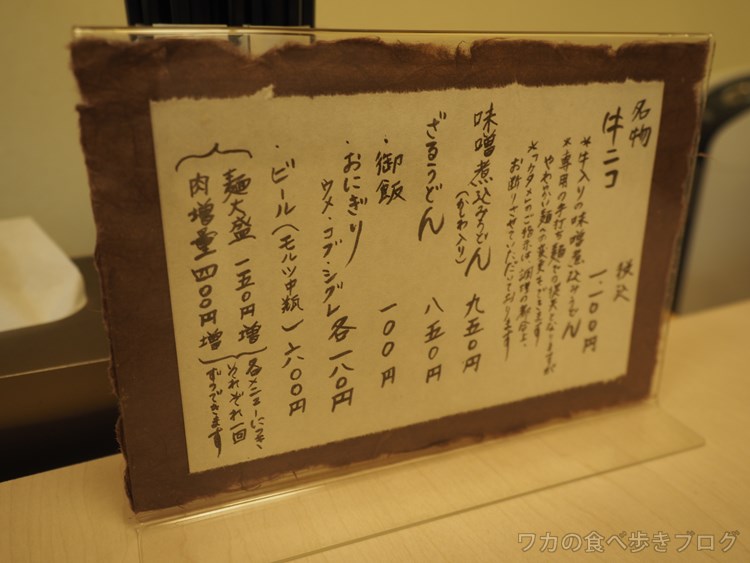 名物
牛ニコ
税込
一、一〇〇円
*牛入りの味噌煮込みうどん
*専用の手打ち麺での提供となりますが
やわらかい麺への変更ができます
*カタメとのご指示は調理の都合上、
お断りさせていただいております
味噌煮込みうどん 九五〇円
(かしわ入り)
ざるうどん 八五〇円
・御飯 一〇〇円
・おにぎり 各一八〇円
ウメ・コブ・シグレ
・ビール(モルツ中瓶) 六〇〇円
麺大盛 一五〇円増
肉増量 四〇〇円増
各メニューにつき、
それぞれ一回
ずつできます
ワカの食べ歩きブログ